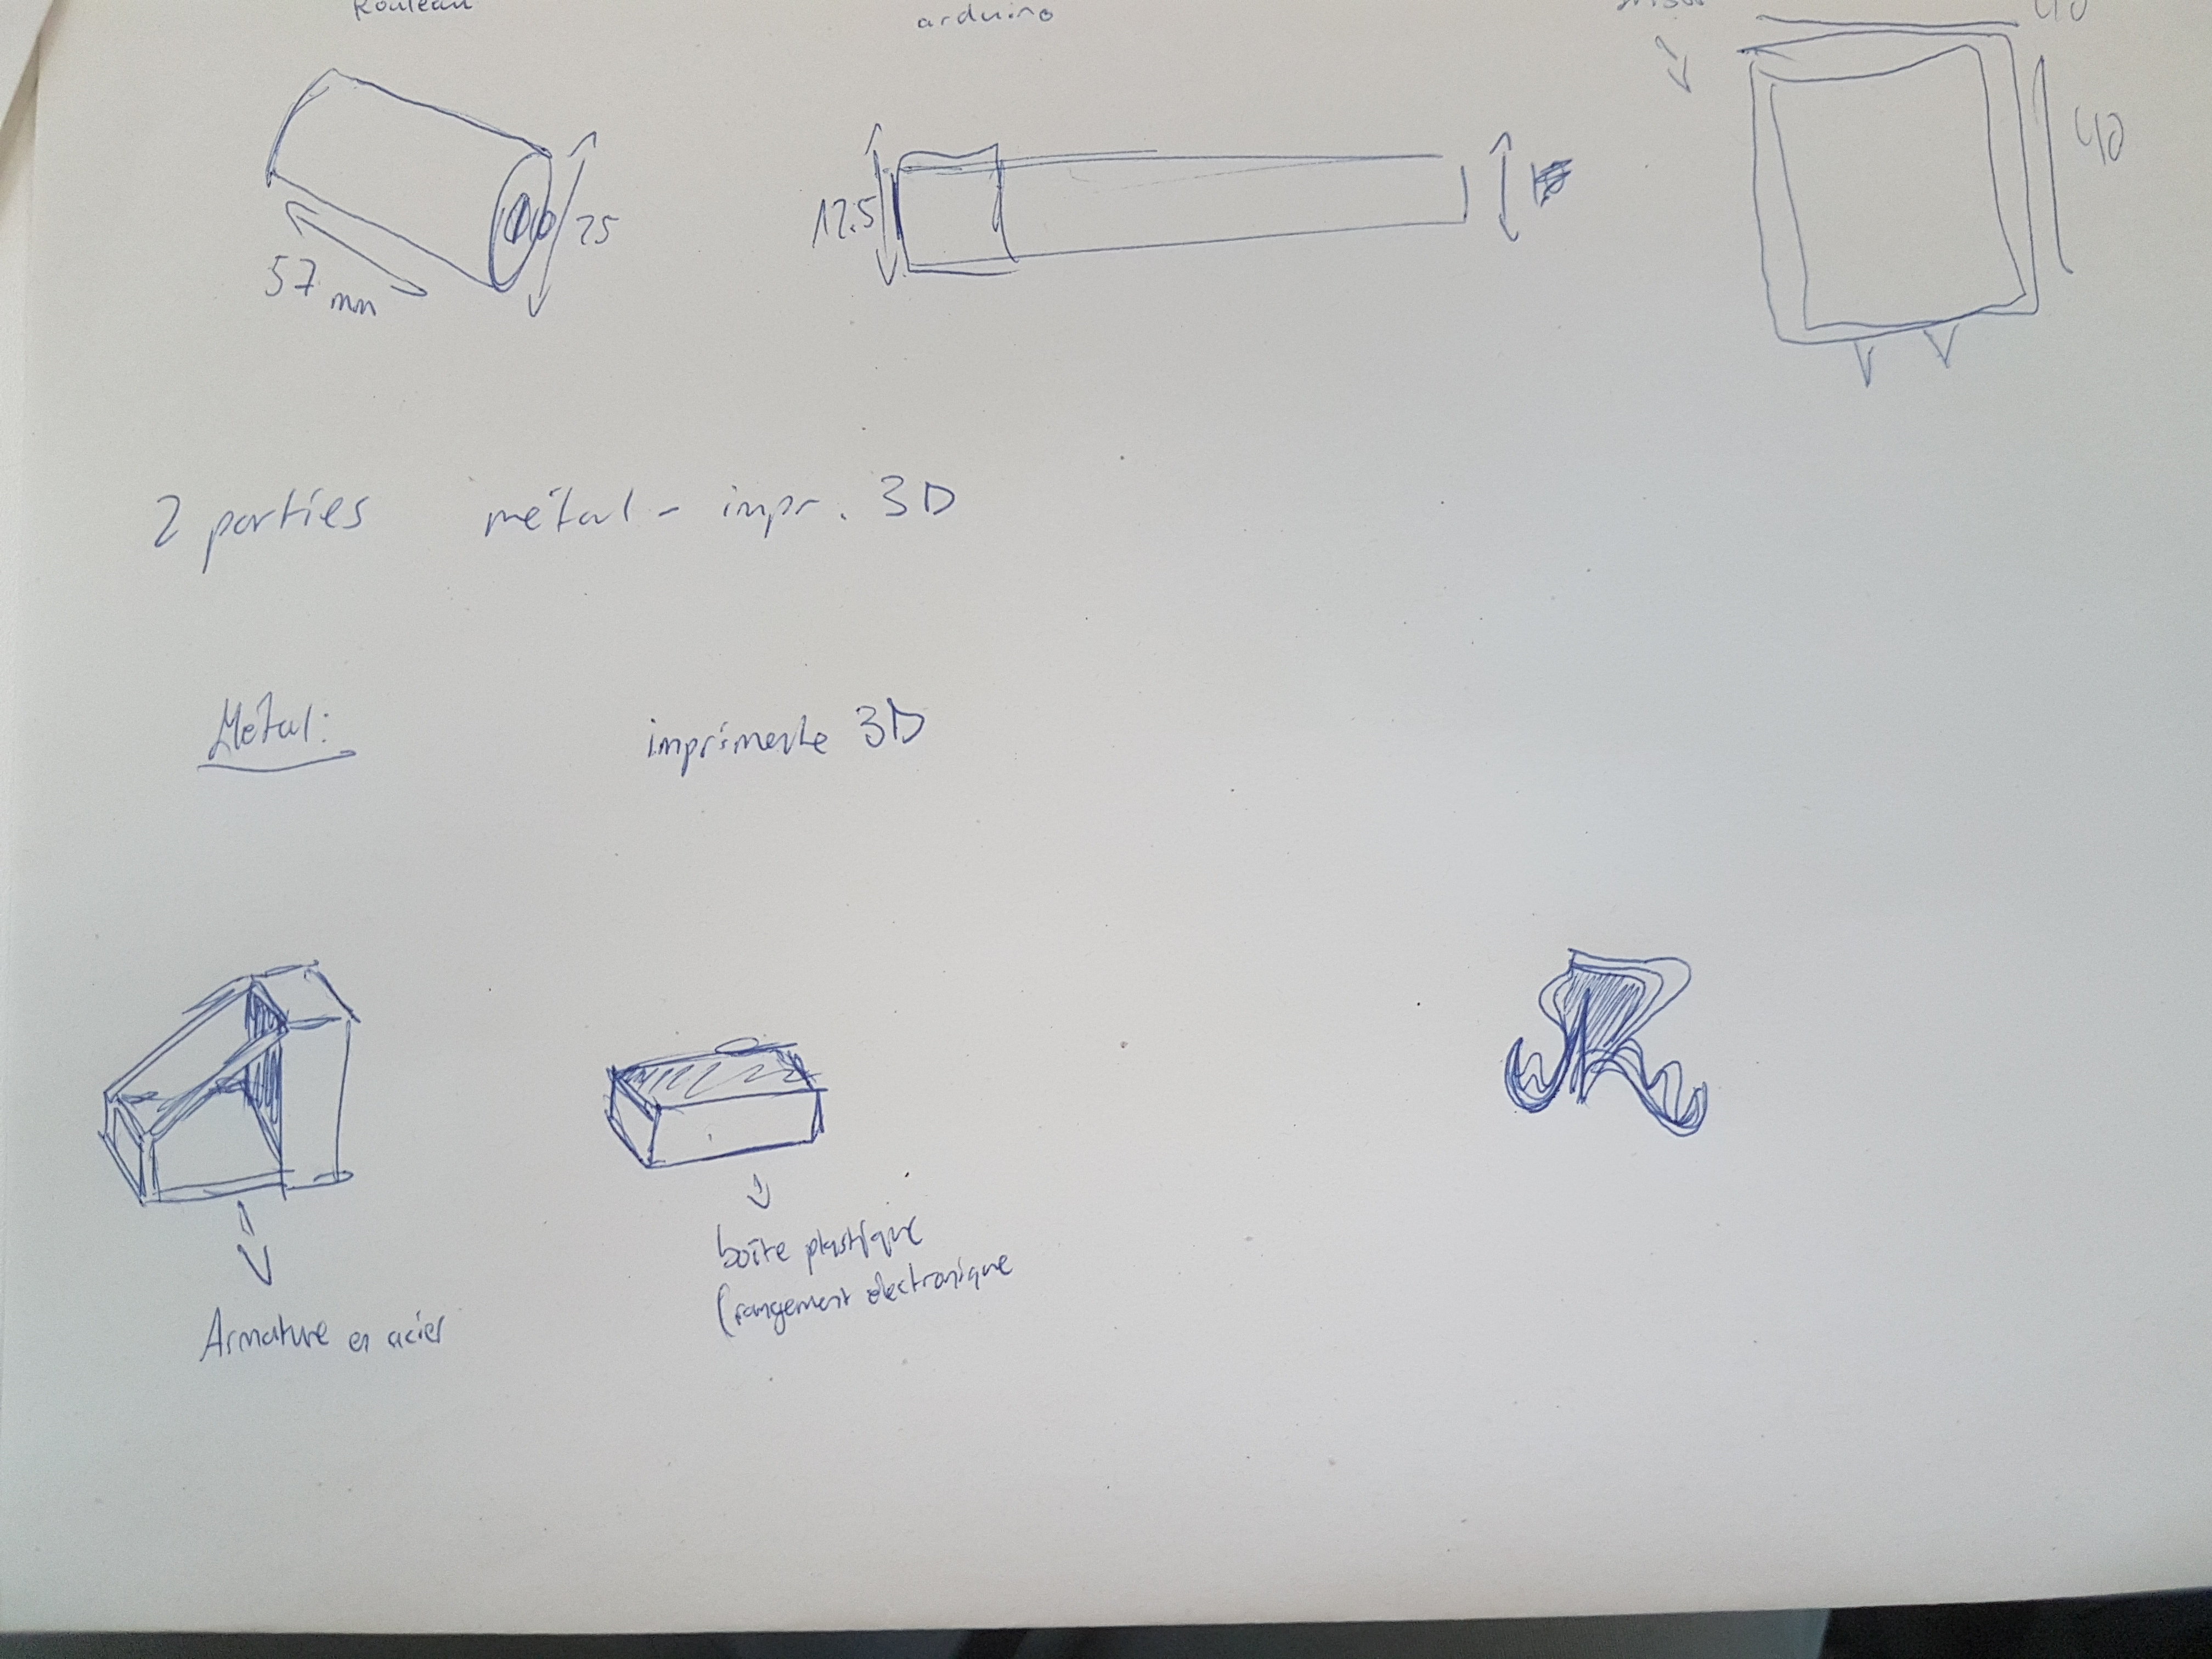 Rouleau
arduino
57 mm
25
17.5
40
40
2 parties métal - impr. 3D
Métal:
imprimente 3D
Armature en acier
boîte plastique
(rangement électronique